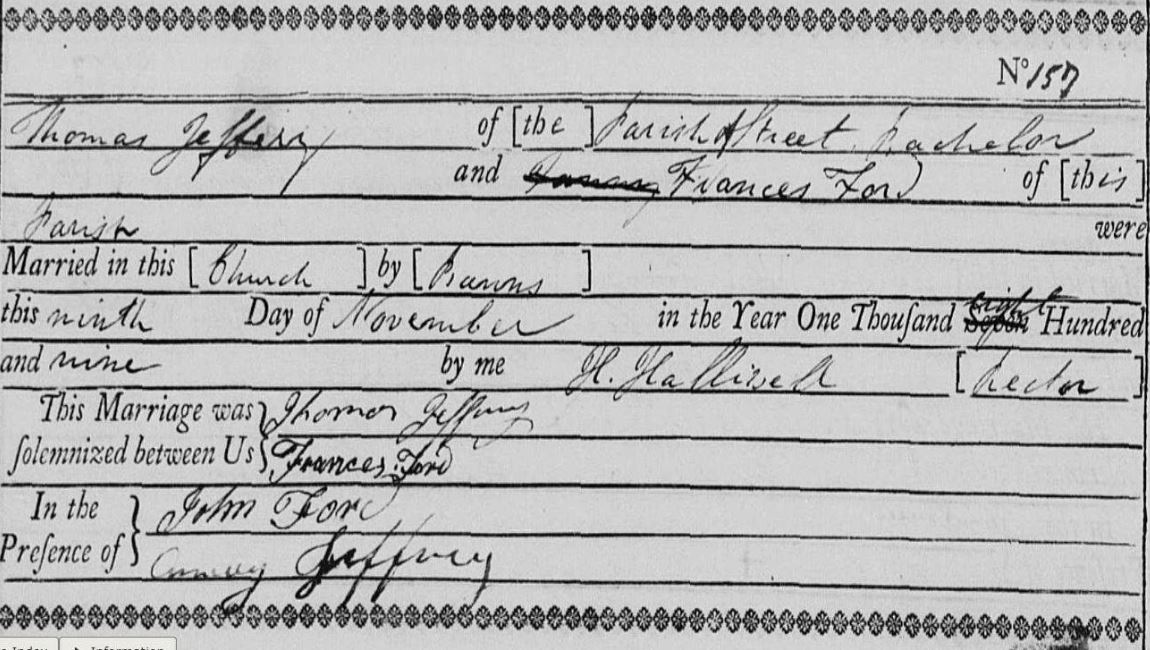 No 157
Thomas Jeffery of [the ] Parish of Street Bachelor
and Frances Ford of [this]
Parish were
Married in this [Church ] by [Banns ]
this ninth Day of November in the Year One Thouſand eight Seven Hundred
and nine by me H. Halliwell [Rector]
This Marriage was Thomas Jeffery
ſolemnized between Us Frances Ford
In the John Ford
Preſence of Jeffrey
Information